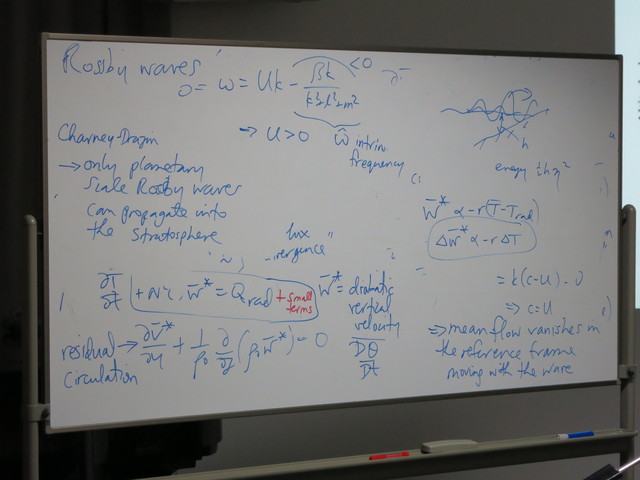 Rossby waves
0 = ω = Uk - βk / k²+l²+m² <0
Charney-Drazin → U>0 ω̂ intrin.
frequency
→ only planetary
scale Rossby waves
can propagate into
the stratosphere
energy ½hη²
W̄* ∝ -r(T̄-Trad)
ΔW̄* ∝ -rΔT̄
∂T̄/∂t + N² W̄* = Qrad + small
terms
W̄* =
vertical
velocity
Dθ/Dt
residual → ∂V̄*/∂y + 1/ρ₀ ∂/∂z (ρ₀W̄*) = 0
circulation
= k(c-U) - 0
⇒ c=U
⇒ mean flow vanishes in
the reference frame
moving with the wave